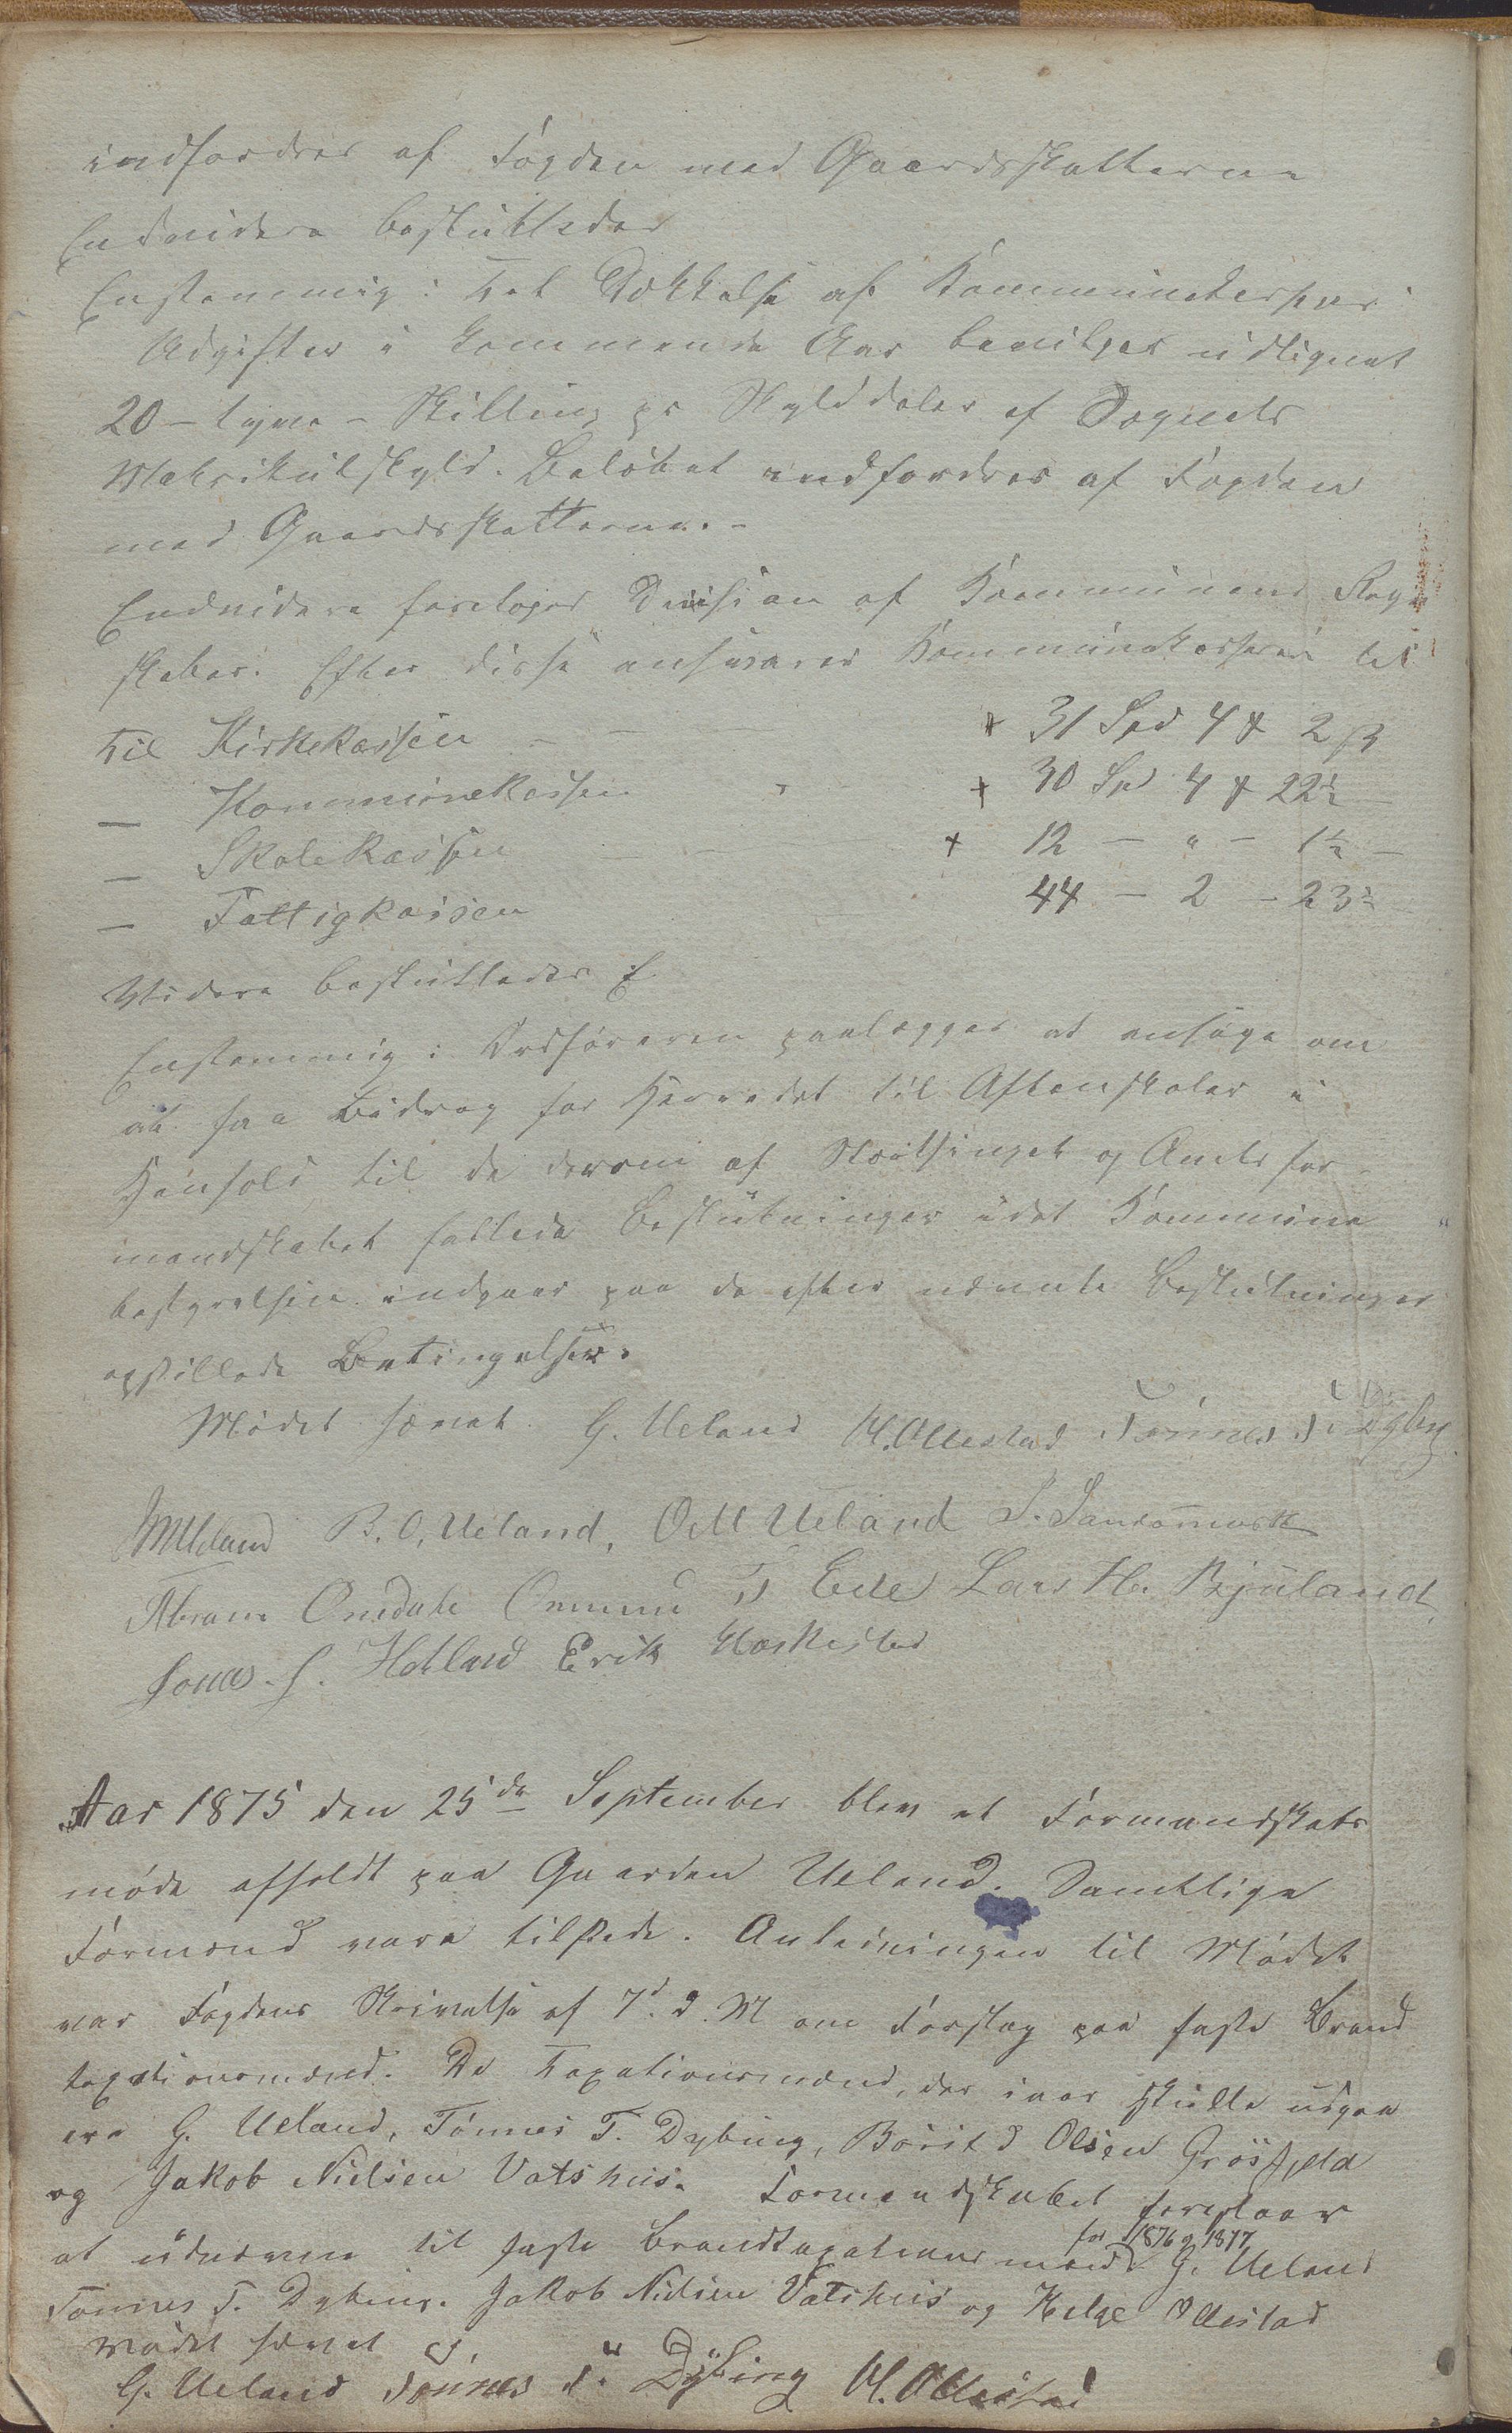 indfordres af Fogden med Gaardsskatterne
Endvidere besluttedes
Enstemmig: Til Dækkelse af Kommunekassens
Udgifter i kommende Aar bevilges udlignet
20 – tyve – Skilling pr Skylddaler af Sognets
Matrikulskyld. Beløbet indfordres af Fogden
med Gaardsskatterne. –
Endvidere foretoges Decision af Kommunens Regn
skaber. Efter disse ansvarer Kommunekassereren
Til Kirkekassen – – + 31 Spd 4 ℔ 2 ß
– Kommunekassen + 30 Sp 4 ℔ 22½ –
– Skolekassen – – + 12 – " – 1½ –
– Fattigkassen 44 – 2 – 23½
Videre besluttedes
Enstemmig: Ordføreren paalægges at ansøge om
at faa Bidrag for Herredet til Aftenskoler i
Henhold til de derom af Storthinget og Amtsfor-
mandskabet fattede Beslutninger idet Kommune
bestyrelsen indgaar paa de efter nævnte Beslutninger
opstillede Betingelser.
Mødet hævet. G. Ueland H. Ollestad Tønnes T. Dybing
M Ueland B. O. Ueland, O M Ueland S. Sandsmark
Abram Omdahl Ommund T Eide Lars H. Bjuland
Jonas. S. Hetland Erik Haskestad
Aar 1875 den 25de September blev et Formandskabs
møde afholdt paa Gaarden Ueland. Samtlige
Formænd vare tilstede. Anledningen til Mødet
var Fogdens Skrivelse af 7d. d. M om Forslag paa faste Brand
taxationsmænd. De Taxationsmænd, der i aar skulle udgaa
ere G. Ueland, Tønnes T. Dybing, Børild Olsen Grøsfjeld
og Jakob Nielsen Vatshus. Formandskabet foreslaar
at udnævne til faste Brandtaxationsmænd for 1876 og 1877 G. Ueland
Tønnes T. Dybing. Jakob Nielsen Vatshus og Helge Ollestad
Mødet hævet
G. Ueland Tønnes T. Dybing H. Ollestad